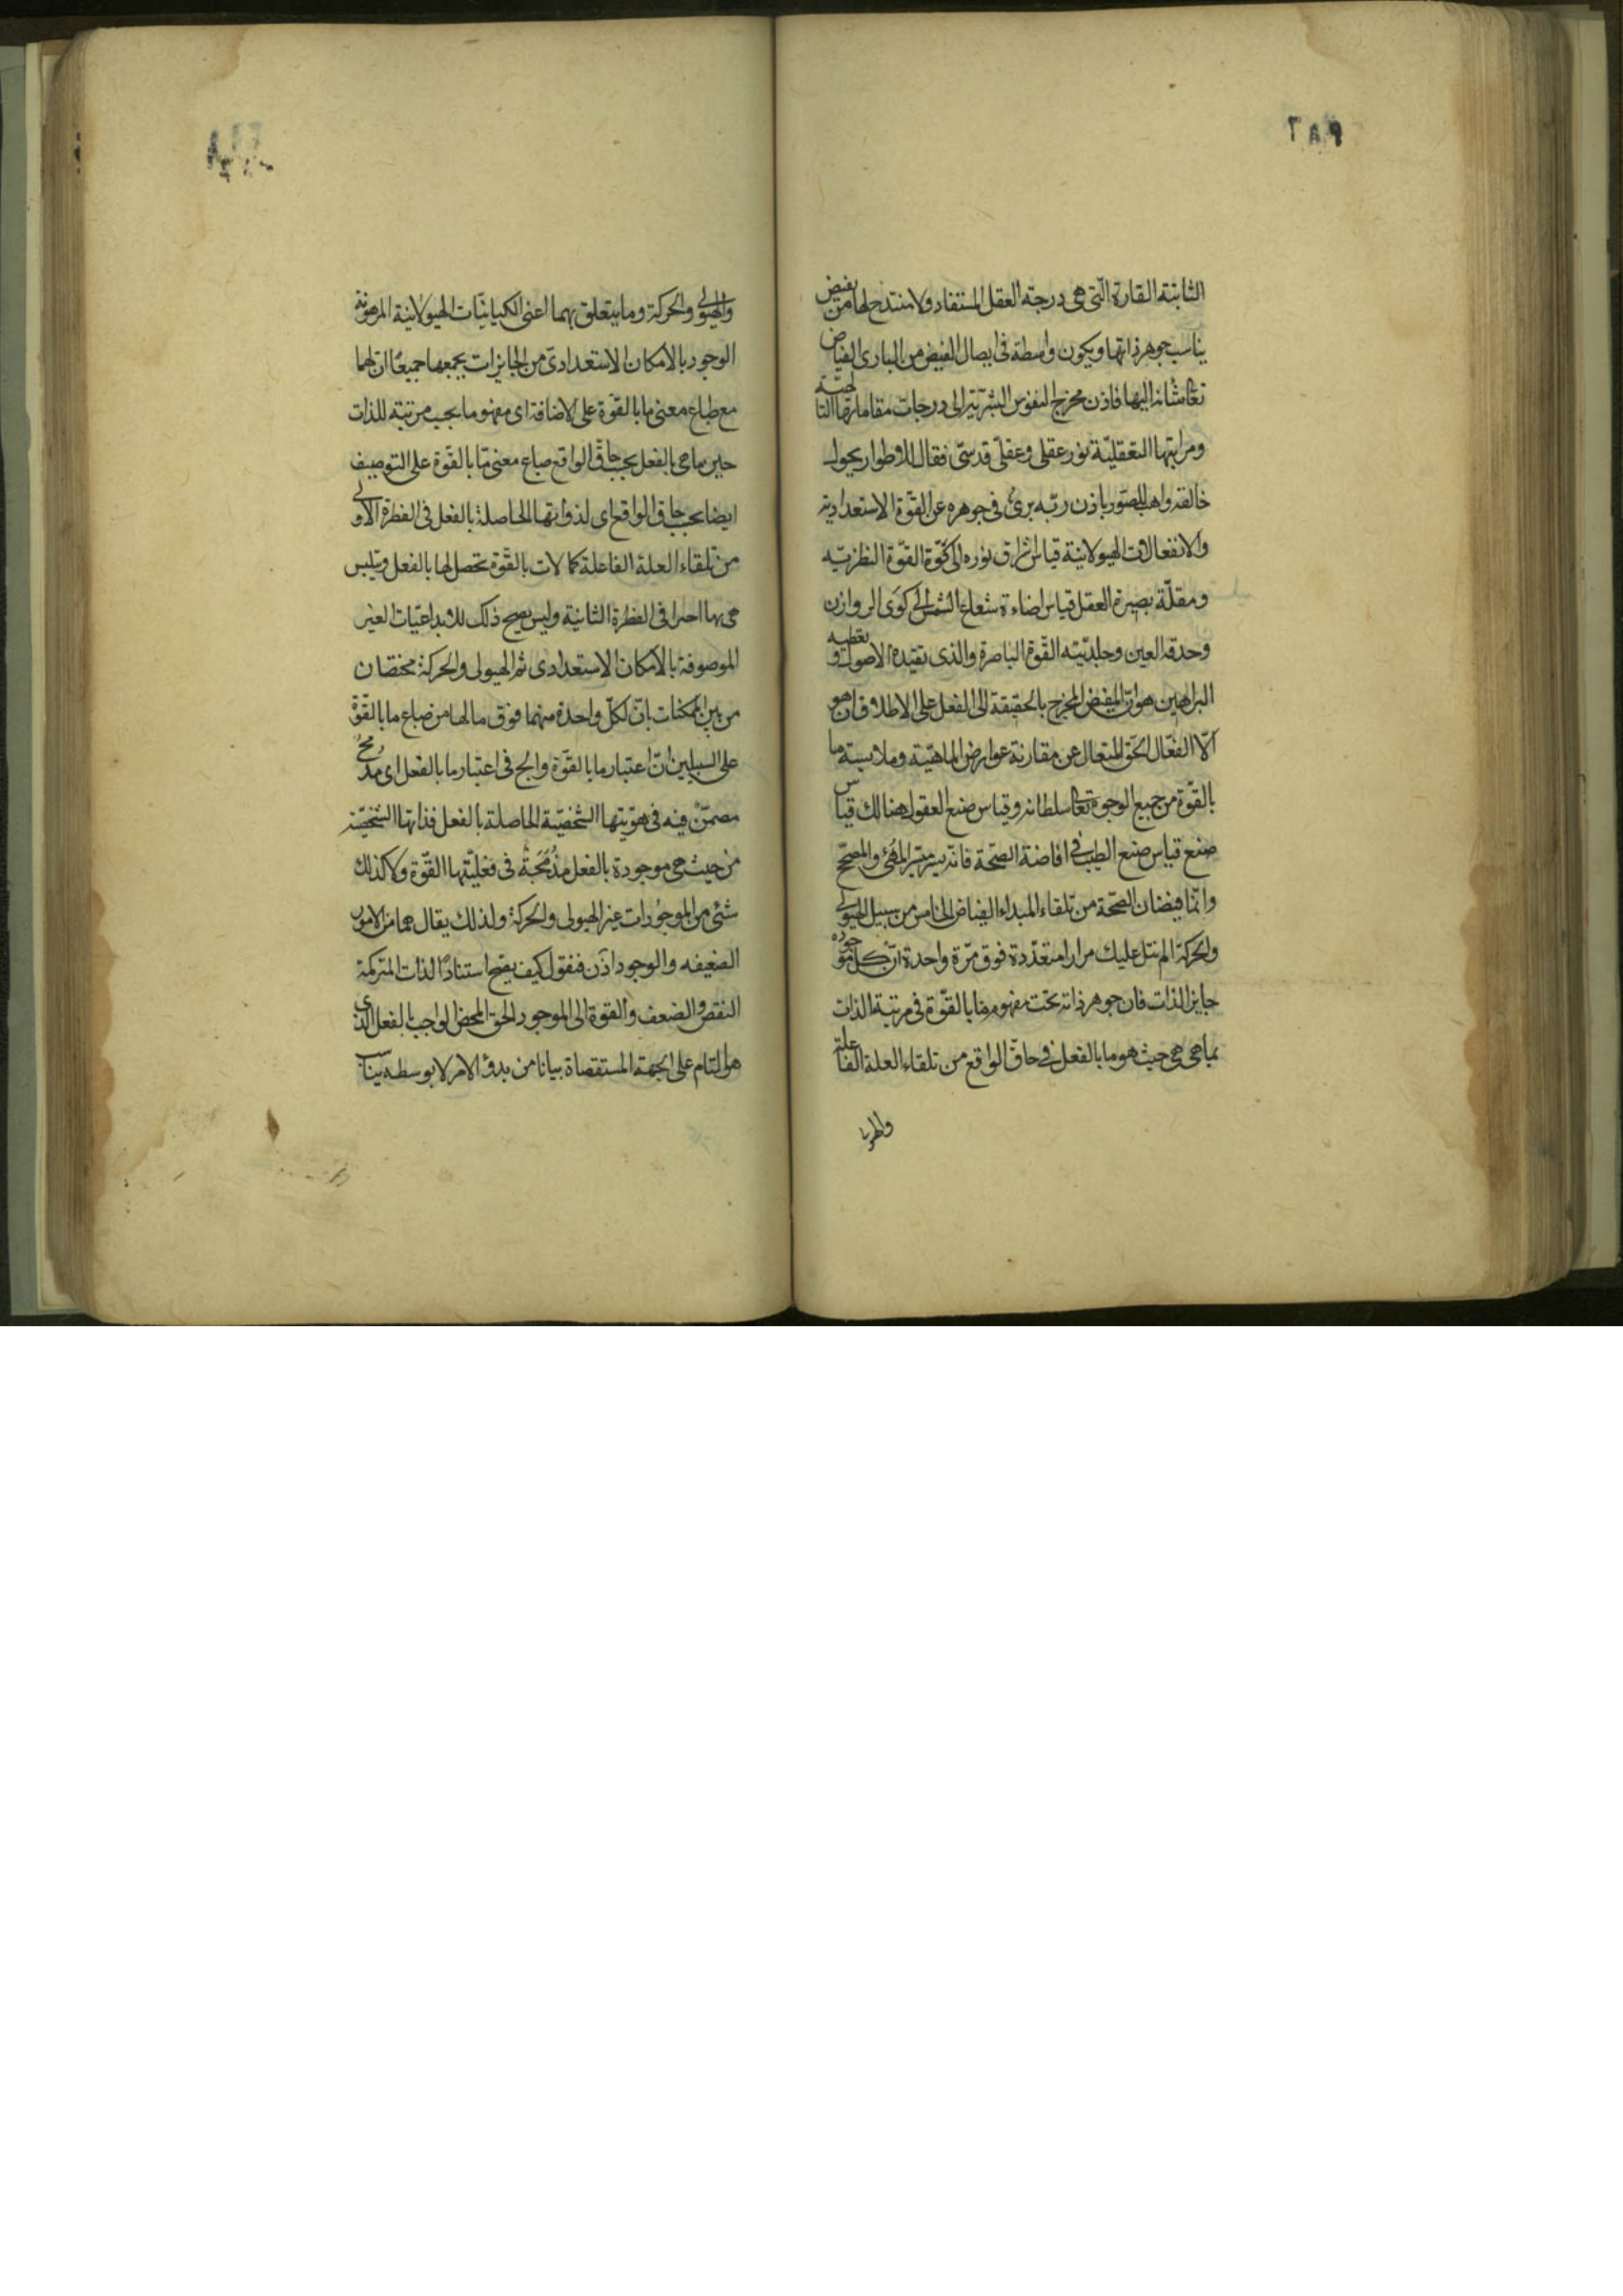 الثابتة القارة التى هى درجة العقل المستفاد ولا منتدح لها من مفيض
يناسب جوهر ذاتها ويكون واسطة فى ايصال الفيض من البارى الفياض
تعالى شانه اليها فاذن مخرج النفوس البشرية الى درجات مقاماتها
ومراتبها التعقلية نور عقلى وعقل قدسى فعّال للاطوار بحول
خالقه واهب للصور باذن ربّه برئ فى جوهره عن القوة الاستعدادية
والانفعالات الهيولانية قياس اشراق نوره الى كوّة القوّة النظرية
ومقلة بصيرة العقل قياس اضاءة شعاع الشمس الى كوى الروازن
وحدقة العين وجليديّته القوة الباصرة والذى تفيده الاصول وتعطيه
البراهين هو انّ المفيض المخرج بالحقيقة الى الفعل على الاطلاق ان هو
الّا الفعّال الحق المتعال عن مقارنة عوارض الماهيّة وملابسة ما
بالقوّة من جميع الوجوه تعالى سلطانه وقياس صنع العقول هنالك قياس
صنع قياس صنع الطبيب فى افاضة الصّحة فانّه ييسّر المهيّئ والمصحّح
وانّما فيضان الصحّة من تلقاء المبداء الفياض الخامس من سبيل الهيولى
والحركة الم نتل عليك مرارا متعدّدة فوق مرّة واحدة انّ كل موجوده
جايز الذات فان جوهر ذاته تحت مفهوم ما بالقوّة فى مرتبة الذات
بما هى هى حيث هو ما بالفعل فى حاق الواقع من تلقاء العلة الفاعلة
والهيولى والحركة وما يتعلق بهما اعنى الكيانيّات الهيولانية المرهونة
الوجود بالامكان الاستعدادىّ من الجايزات يجمعها جميعًا ان لهما
مع طباع معنى ما بالقوّة على الاضافة اى مفهوم ما بحسب مرتبة للذات
حين ما هى بالفعل بحسب حاق الواقع طباع معنى مّا بالقوّة على التوصيف
ايضا بحسب حاق الواقع اى لذواتها الحاصلة بالفعل فى الفطرة الاولى
من تلقاء العلة الفاعلة كمالات بالقوّة تحصل لها بالفعل وتلبس
هى بها اخيرا فى الفطرة الثانية وليس يصح ذلك للابداعيّات الغير
الموصوفة بالامكان الاستعدادى ثم الهيولى والحركة مختصّان
من بين الممكنات بانّ لكلّ واحدة منهما فوق ما لها من طباع ما بالقوّة
على السبيلين انّ اعتبار ما بالقوّة والج فى اعتبار ما بالفعل اى مدمج
مضمّن فيه فى هويّتها الشخصيّة الحاصلة بالفعل فذاتها الشخصيّة
من حيث هى موجودة بالفعل مندمجة فى فعليّتها القوّة ولا كذلك
شئ من الموجودات غير الهيولى والحركة ولذلك يقال هما من الامور
الضعيفه والوجود اذن فنقول كيف يصحّ استناد الذات المتركمة
النقص والضعف والقوة الى الموجود الحق المحض الواجب بالفعل الذى
هو التام على الجهة المستقصاة بيانا من بدؤ الامر لا بوسطه